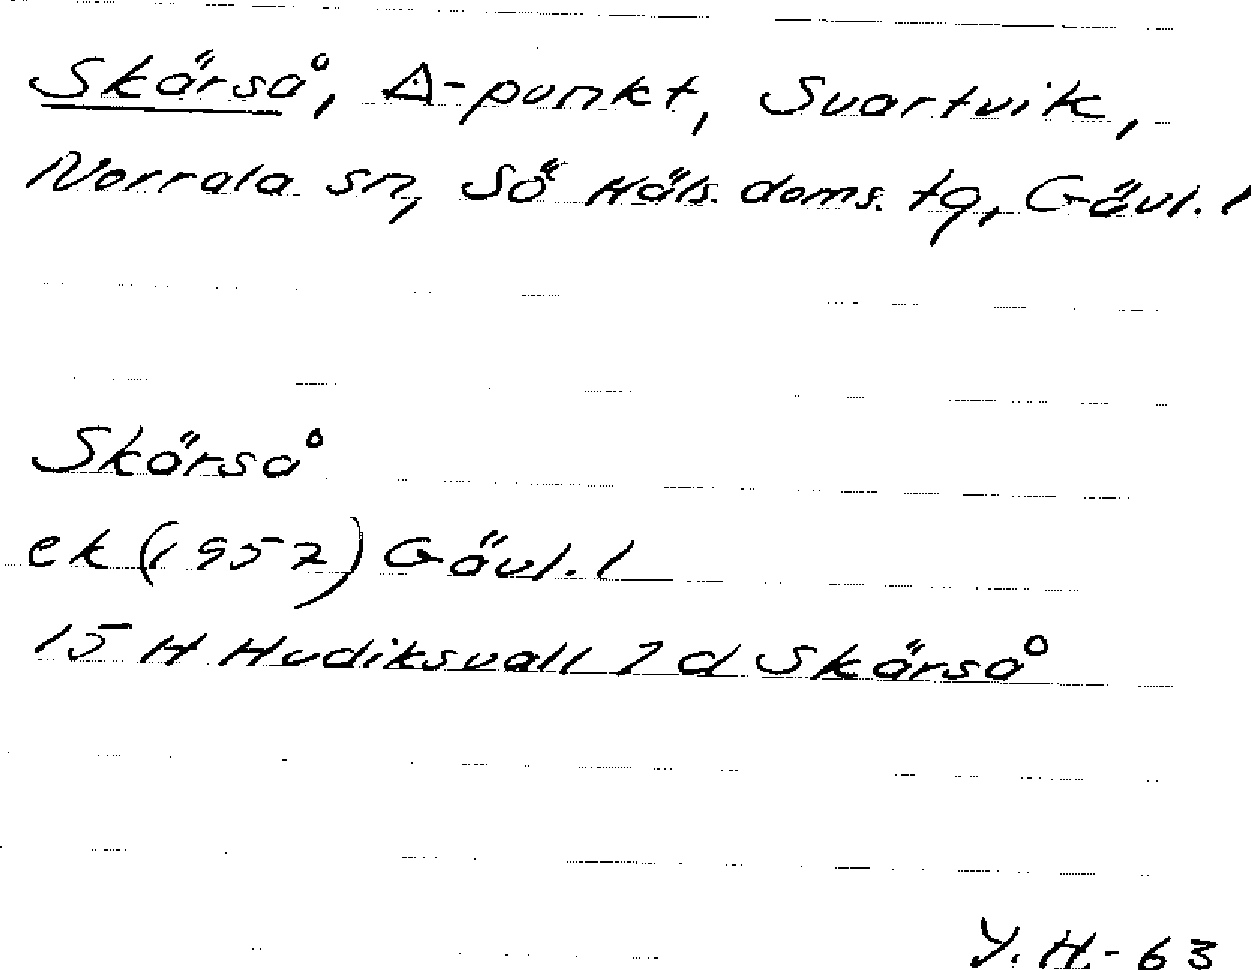 Skärså, △-punkt, Svartvik,
Norrala sn, Sö Häls. doms. tg, Gävl. l
Skärså
ek (1957) Gävl. l
15 H Hudiksvall 7 d Skärså
Y. H. - 63